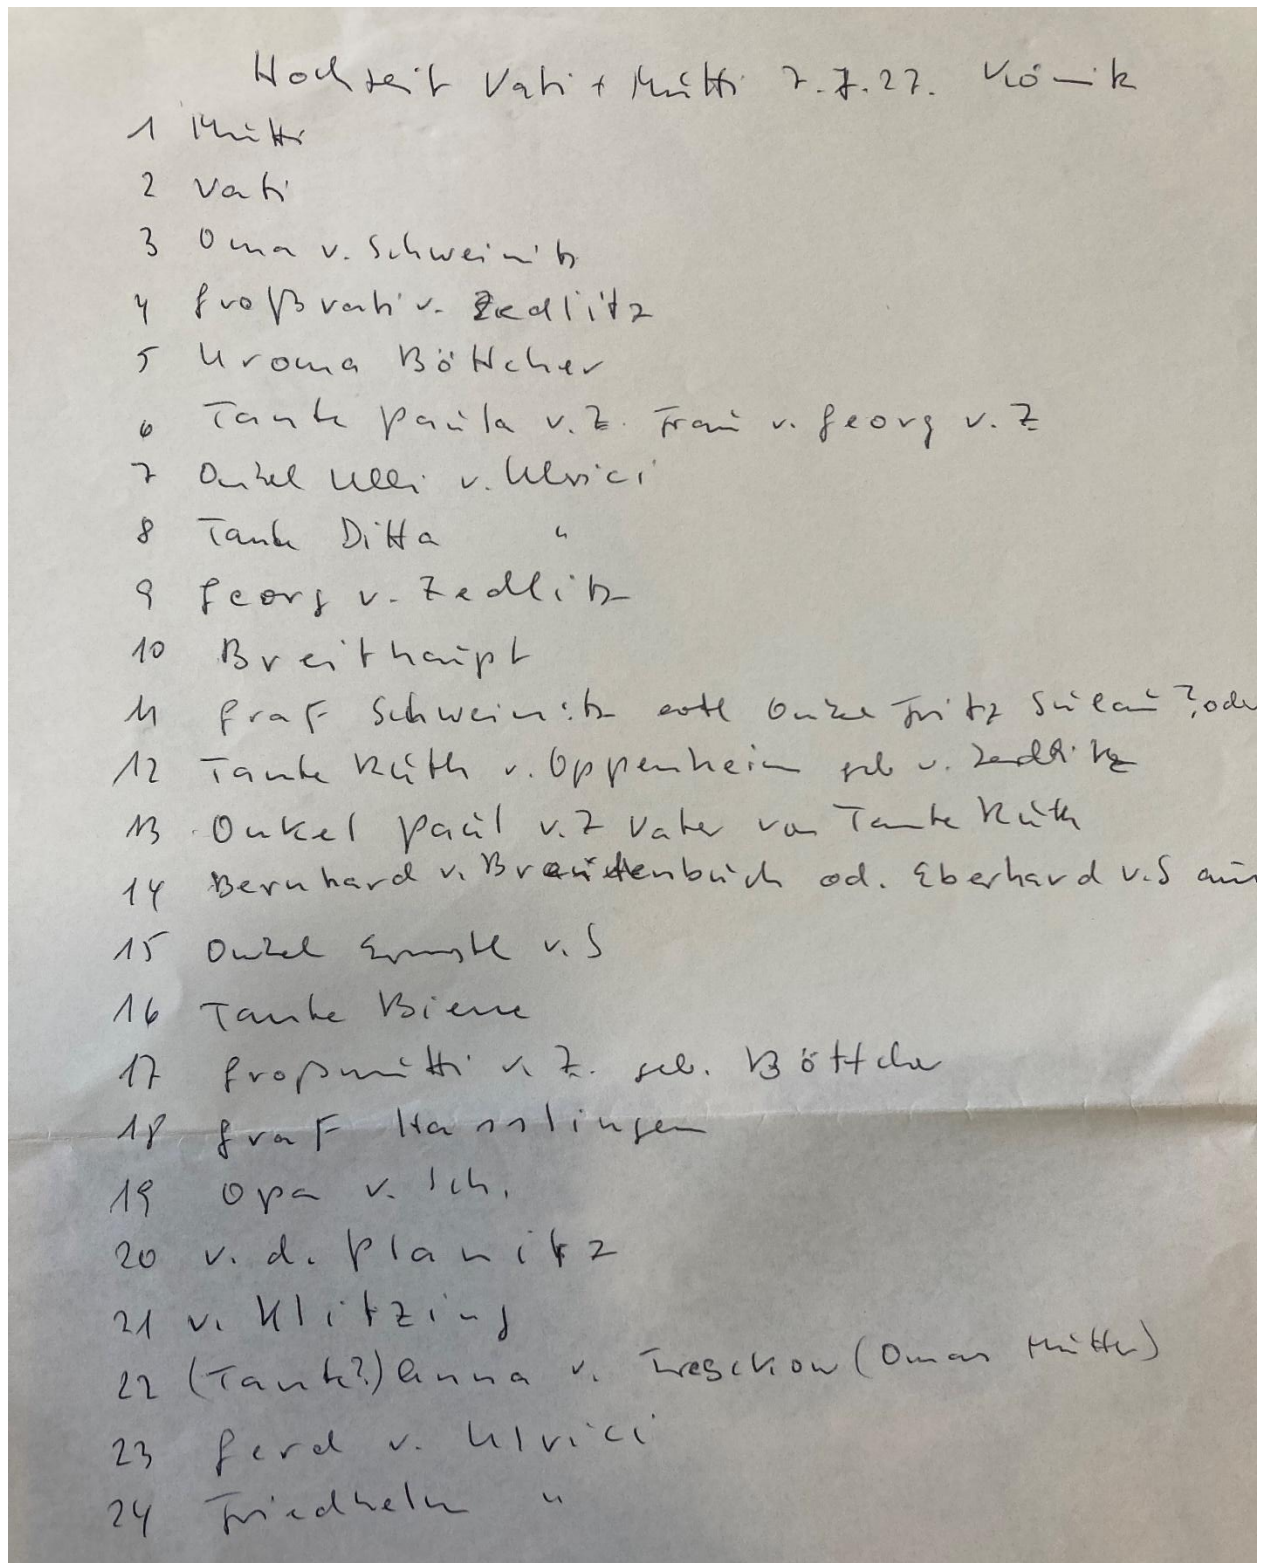 Hochzeit Vati + Mutti 7.7.27.
1 Mutti
2 Vati
3 Oma v. Schweinitz
4 Großvati v. Zedlitz
5 Uroma Böttcher
6 Tante Paula v. Z. Frau v. Georg v. Z
7 Onkel Ulli v. Ulrici
8 Tante Ditta "
9 Georg v. Zedlitz
10 Breithaupt
11 Graf Schweinitz evtl Onkel Fritz Sulau?, oder
12 Tante Ruth v. Oppenheim geb v. Zedlitz
13 Onkel Paul v. Z Vater von Tante Ruth
14 Bernhard v. od. Eberhard v. S aus
15 Onkel v. S
16 Tante Biene
17 Großmutti v. Z. geb. Böttcher
18 Graf Hasslingen
19 Opa v. Sch.
20 v. d. Planitz
21 v. Klitzing
22 (Tante?) Anna v. Tresckow (Omas Mutter)
23 Gerd v. Ulrici
24 Friedhelm "